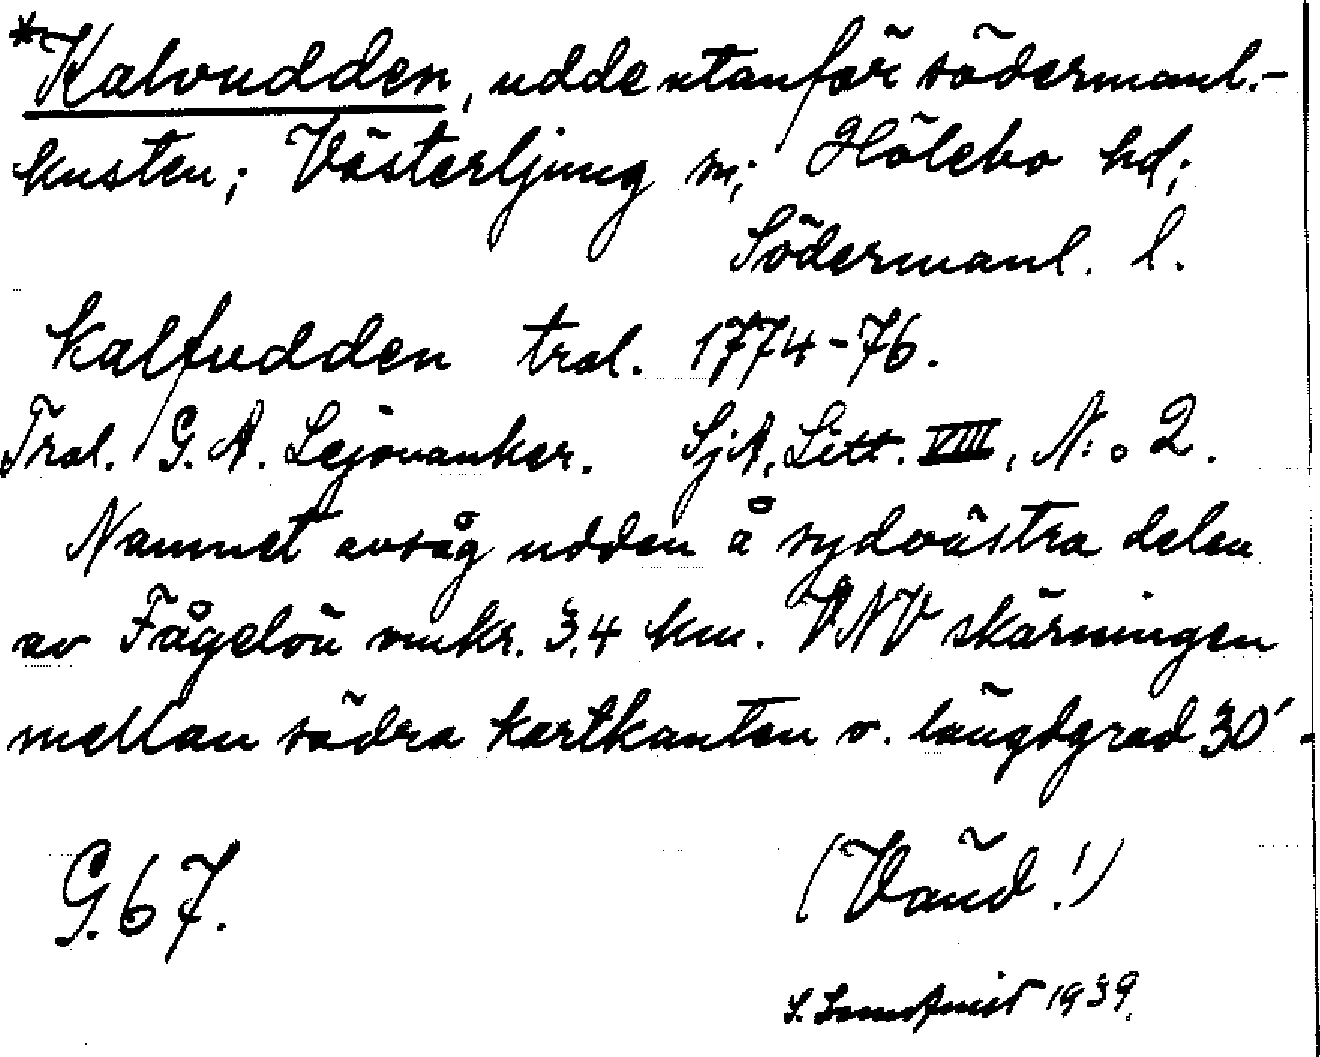 *Kalvudden, udde utanför södermanl.-
kusten; Västerljung sn; Hölebo hd;
Södermanl. l.
Kalfudden tral. 1774-76.
Tral. G. A. Lejonanker. SjA, Litt. VIII, N:o 2.
Namnet avsåg udden å sydvästra delen
av Fågelön omkr. 3,4 km. VNV skärningen
mellan södra kartkanten o. längdgrad 30'.
G. 67.
(Vänd!)
S. 1939.